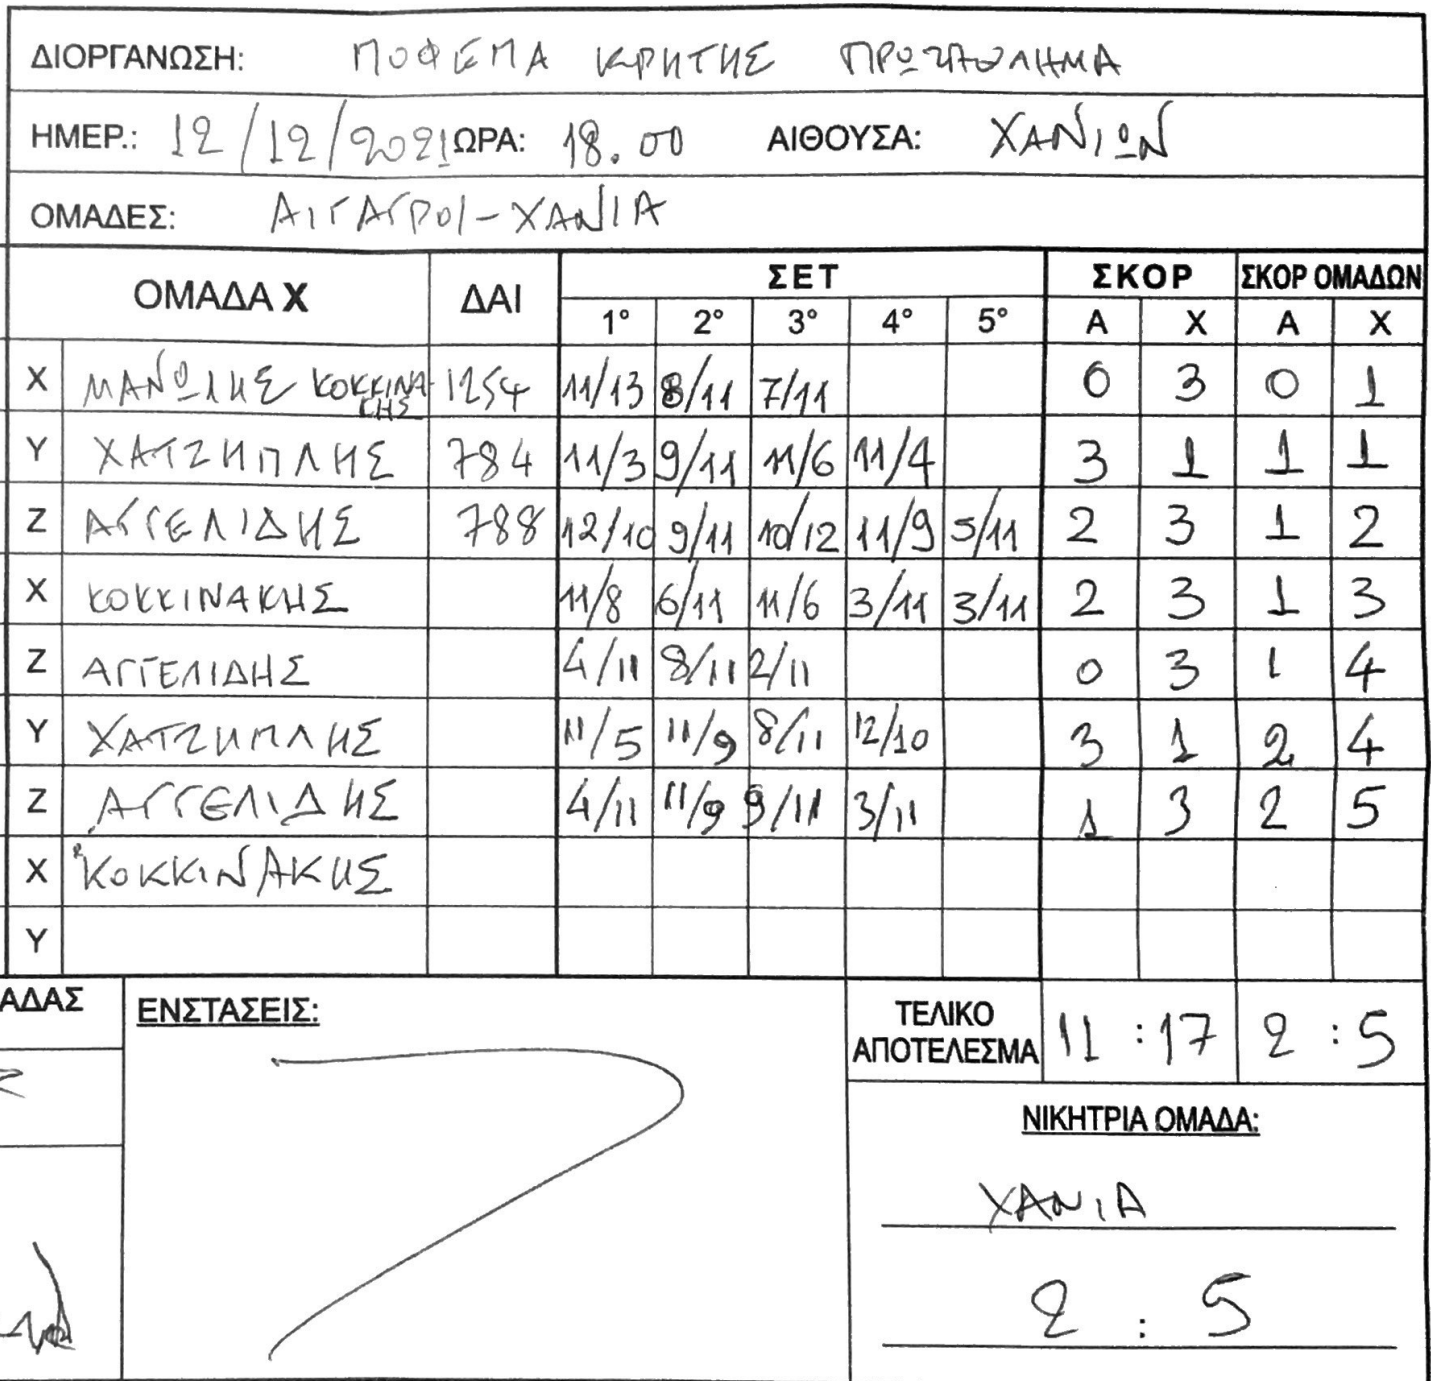 ΔΙΟΡΓΑΝΩΣΗ: ΠΟΦΕΠΑ ΚΡΗΤΗΣ ΠΡΩΤΑΘΛΗΜΑ
ΗΜΕΡ.: 12/12/2021 ΩΡΑ: 18.00 ΑΙΘΟΥΣΑ: ΧΑΝΙΩΝ
ΟΜΑΔΕΣ: ΑΙΓΑΓΡΟΙ-ΧΑΝΙΑ
ΟΜΑΔΑ Χ ΔΑΙ ΣΕΤ ΣΚΟΡ ΣΚΟΡ ΟΜΑΔΩΝ
1° 2° 3° 4° 5° Α Χ Α Χ
Χ ΜΑΝΩΛΗΣ ΚΟΚΚΙΝΑΚΗΣ 1254 11/13 8/11 7/11 0 3 0 1
Υ ΧΑΤΖΗΠΛΗΣ 784 11/3 9/11 11/6 11/4 3 1 1 1
Ζ ΑΓΓΕΛΙΔΗΣ 788 12/10 9/11 10/12 11/9 5/11 2 3 1 2
Χ ΚΟΚΚΙΝΑΚΗΣ 11/8 6/11 11/6 3/11 3/11 2 3 1 3
Ζ ΑΓΓΕΛΙΔΗΣ 4/11 8/11 2/11 0 3 1 4
Υ ΧΑΤΖΗΠΛΗΣ 11/5 11/9 8/11 12/10 3 1 2 4
Ζ ΑΓΓΕΛΙΔΗΣ 4/11 11/9 9/11 3/11 1 3 2 5
Χ ΚΟΚΚΙΝΑΚΗΣ
Υ
ΑΔΑΣ ΕΝΣΤΑΣΕΙΣ: ΤΕΛΙΚΟ
ΑΠΟΤΕΛΕΣΜΑ 11 : 17 2 : 5
ΝΙΚΗΤΡΙΑ ΟΜΑΔΑ:
ΧΑΝΙΑ
2 : 5